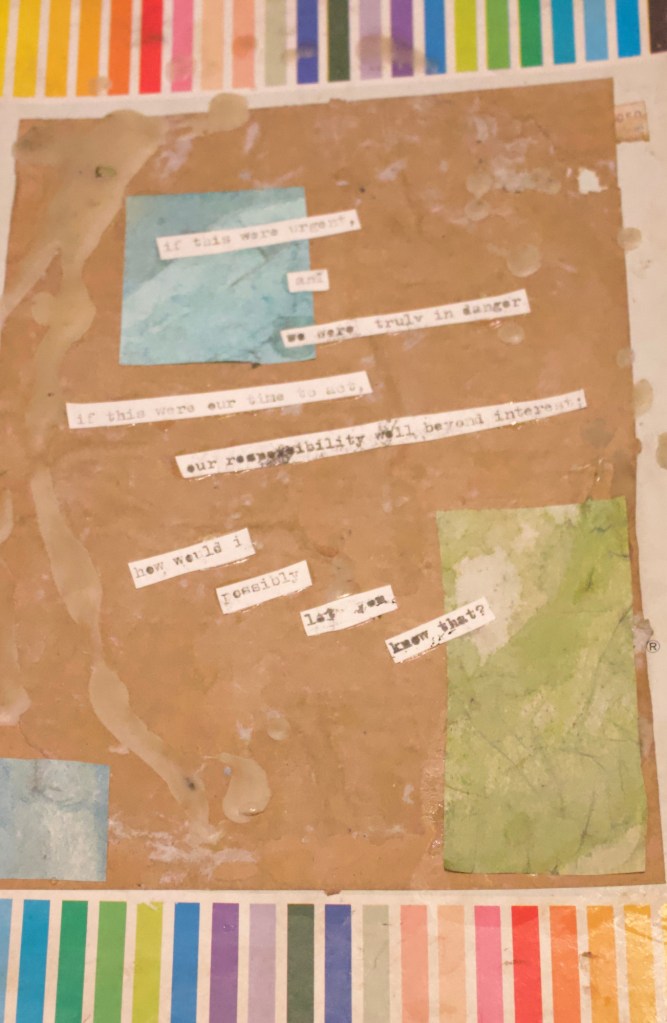 if this were urgent,
and
we were truly in danger
if this were our time to act,
our responsibility well beyond interest;
how would i
possibly
let you
know that?
®